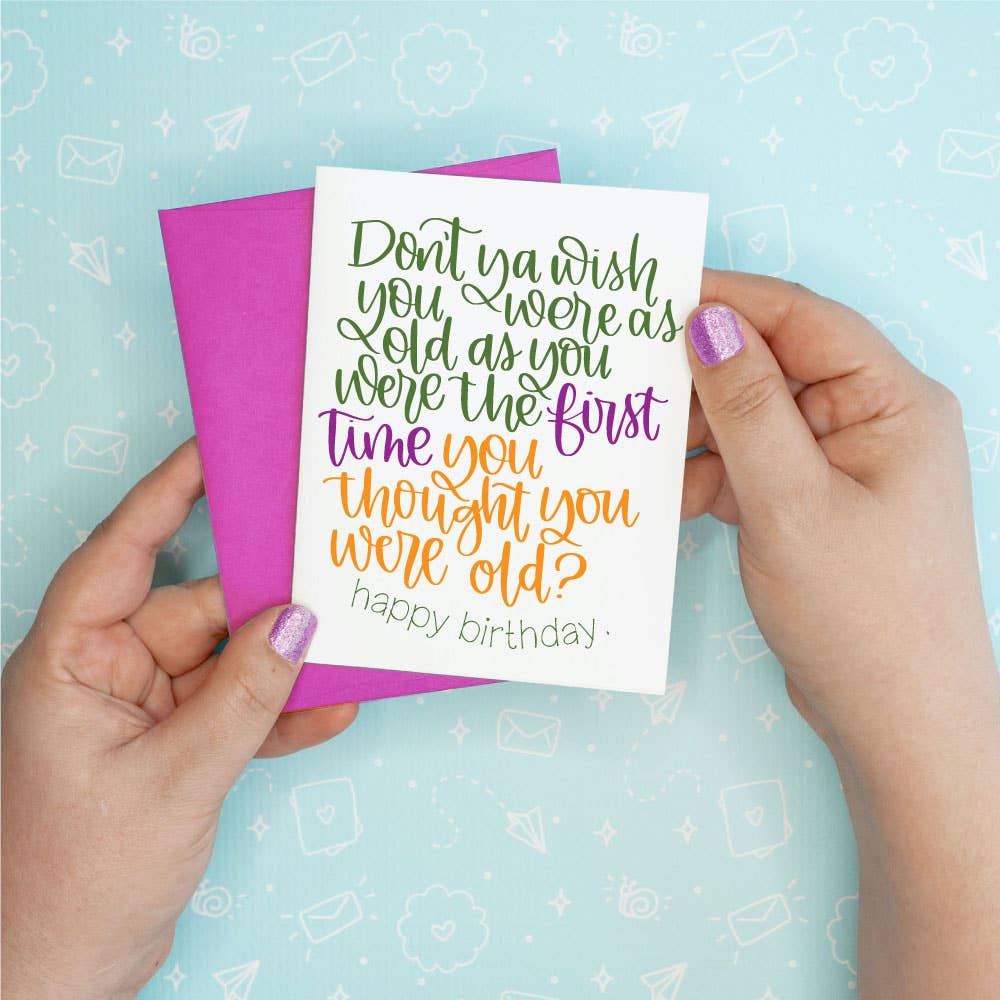 Don't ya wish
you were as
old as you
were the first
time you
thought you
were old?
happy birthday.